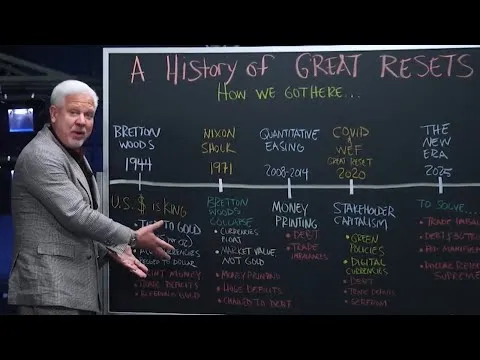 A HISTORY of GREAT RESETS
HOW WE GOT HERE...
BRETTON
WOODS
1944
NIXON
SHOCK
1971
QUANTITATIVE
EASING
2008-2014
COVID
WEF
GREAT RESET
2020
THE
NEW
ERA
2025
U.S. $ IS KING
TO GOLD
TO DOLLAR
MONEY
DEFICITS
BRETTON
WOODS
COLLAPSE
• CURRENCIES
FLOAT
• MARKET VALUE
NOT GOLD
• MONEY PRINTING
• HUGE DEFICITS
• CHAINED TO DEBT
MONEY
PRINTING
• DEBT
• TRADE
IMBALANCES
STAKEHOLDER
CAPITALISM
• GREEN
POLICIES
• DIGITAL
CURRENCIES
• DEBT
• TRADE
TO SOLVE...
• TRADE
• DEBT
• DOLLAR